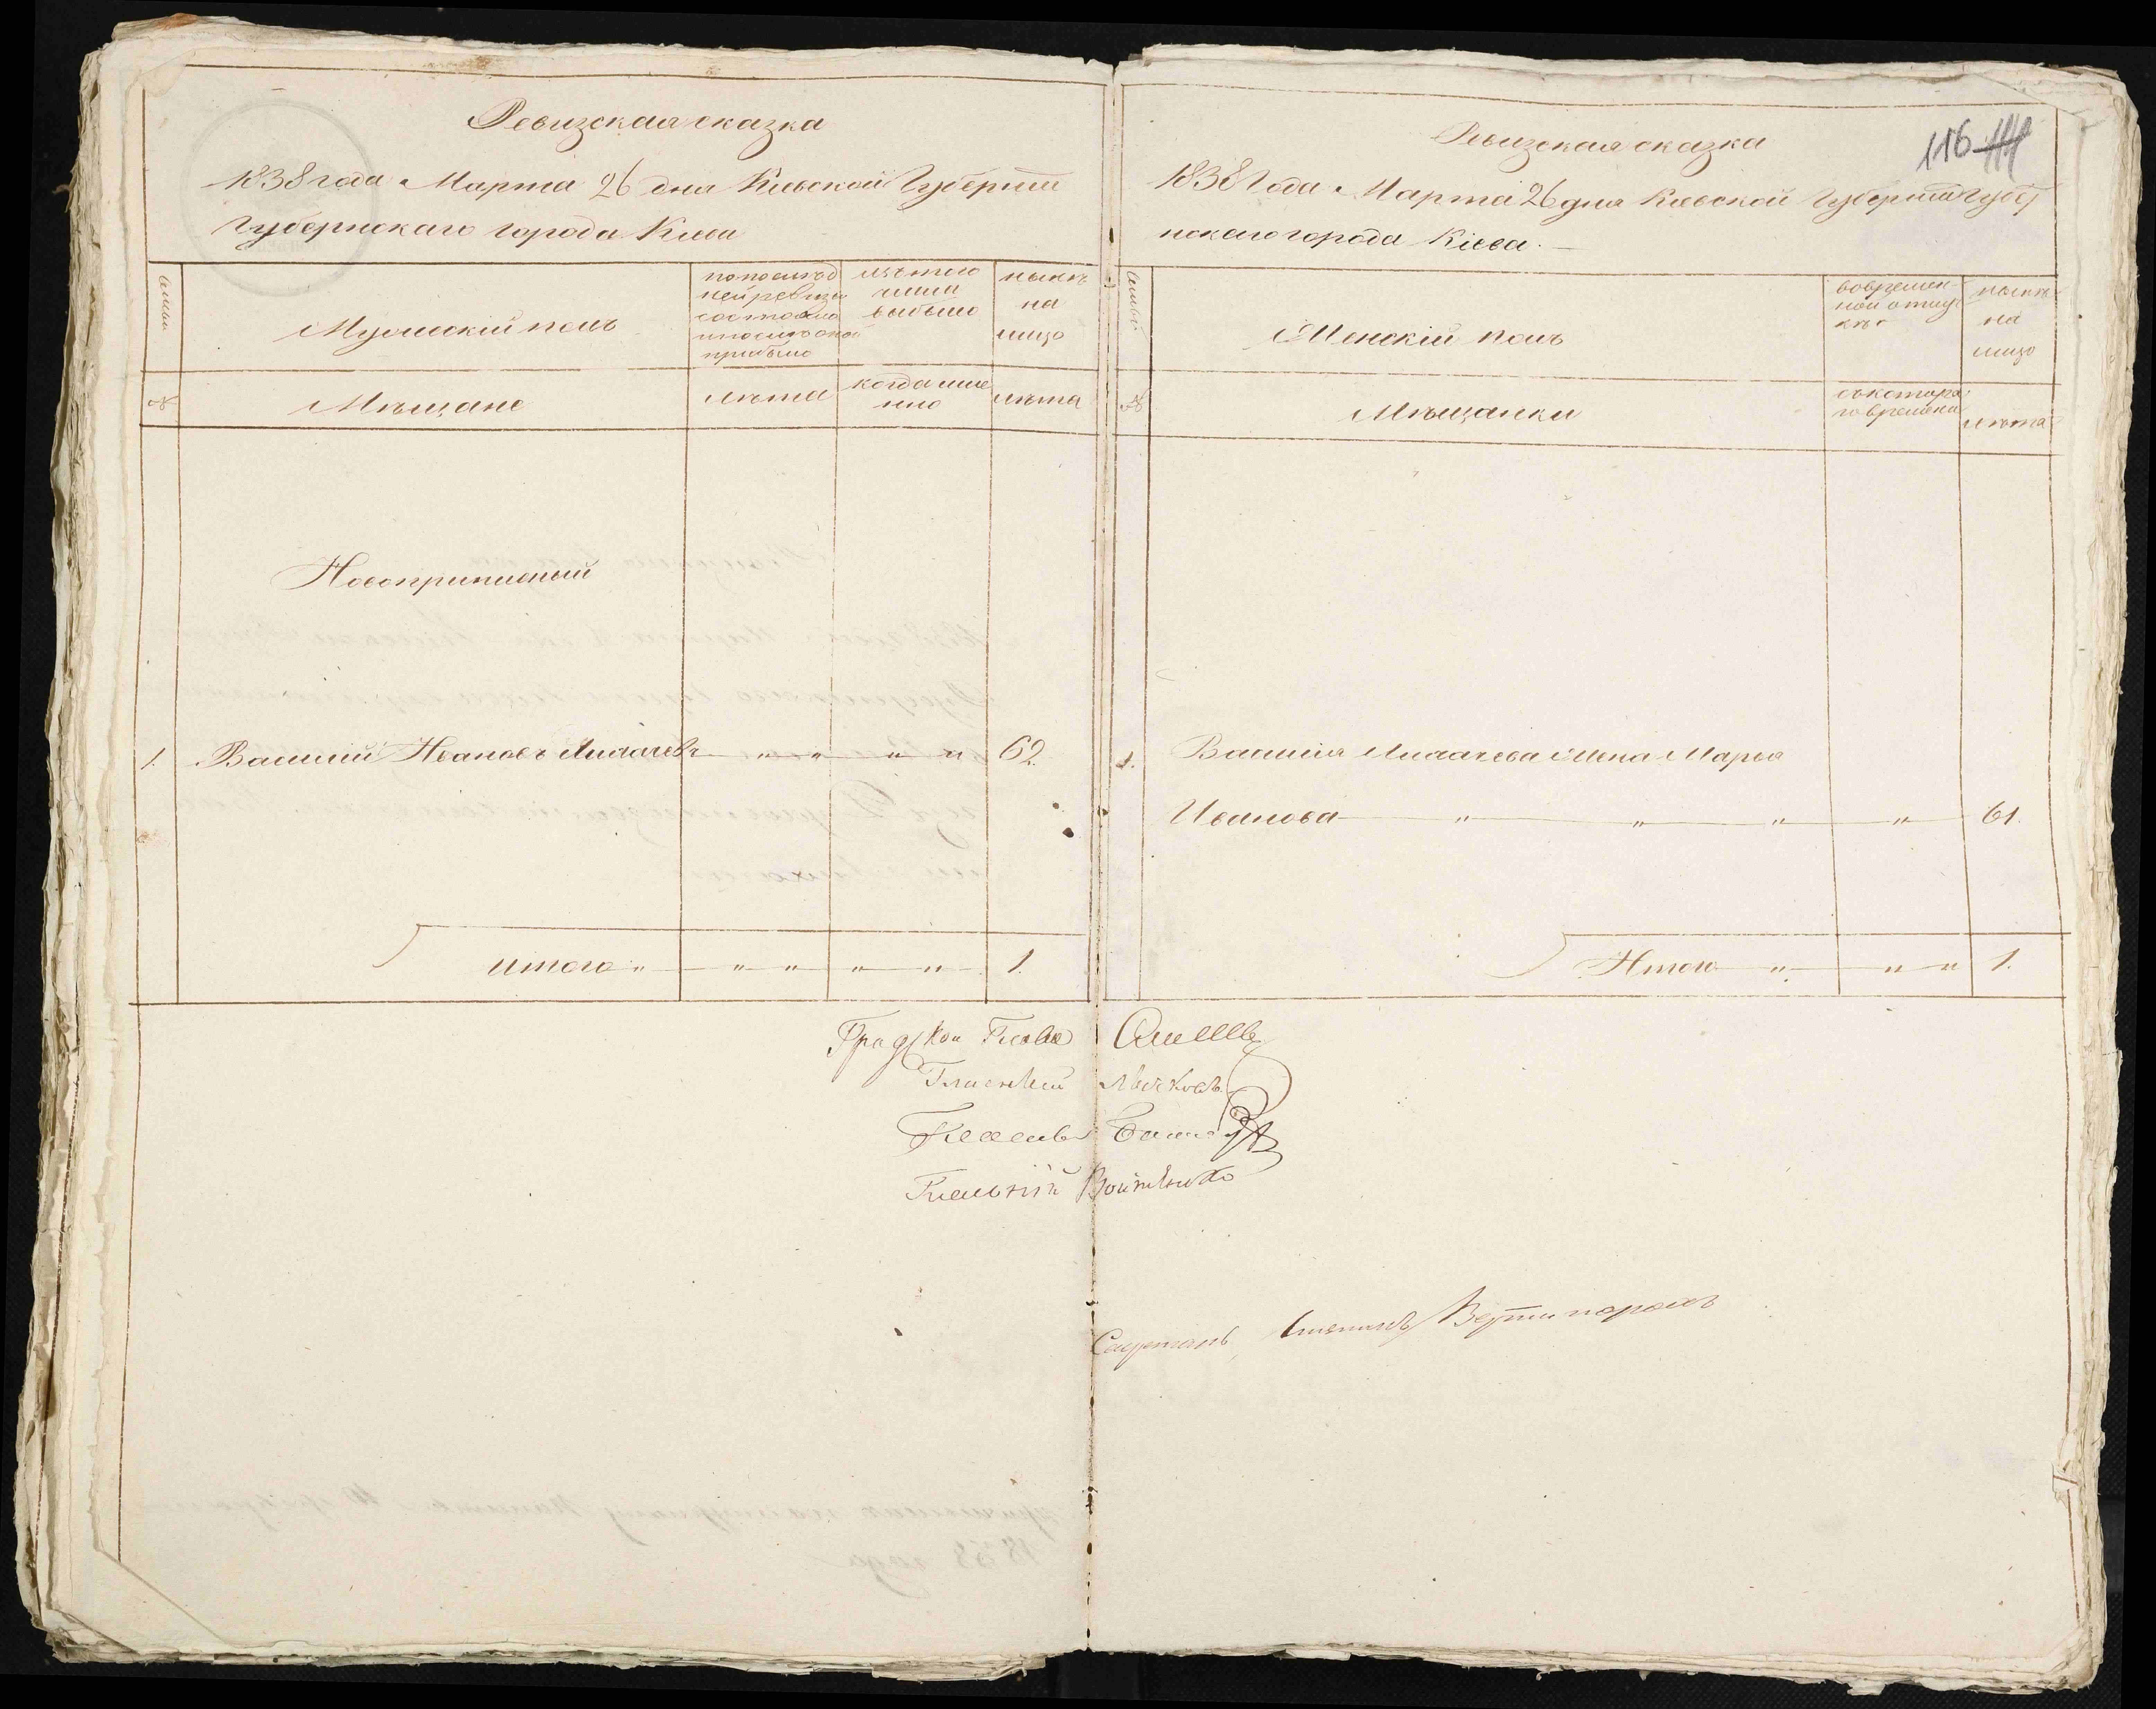 Ревизская сказка
1838 года Марта 26 дня Киевской Губернии
Губернскаго города Киева
семьи
Мужеский полъ
по послѣд
ней ревизіи
состояло
и послѣ оной
прибыло
изъ того
числа
выбыло
нынѣ
на
лицо
№
Мѣщане
лѣта
когда име
нно
лѣта
Новоприписный
1. Василий Ивановъ " " " " 62.
итого " " " " " 1.
116
Ревизская сказка
1838 Года Марта 26 дня Киевской Губернии Губер
нскаго города Кіева. —
семьи
Женскій полъ
во времен-
ной отлуч
кѣ
нынѣ
на
лицо
№
Мѣщанки
съ котора
го времени
лѣта
1. Василия жена Марья
Иванова " " " " 61.
Итого " " " 1.
Градской Глава
Гласный
Гласный
Гласный Войтенко